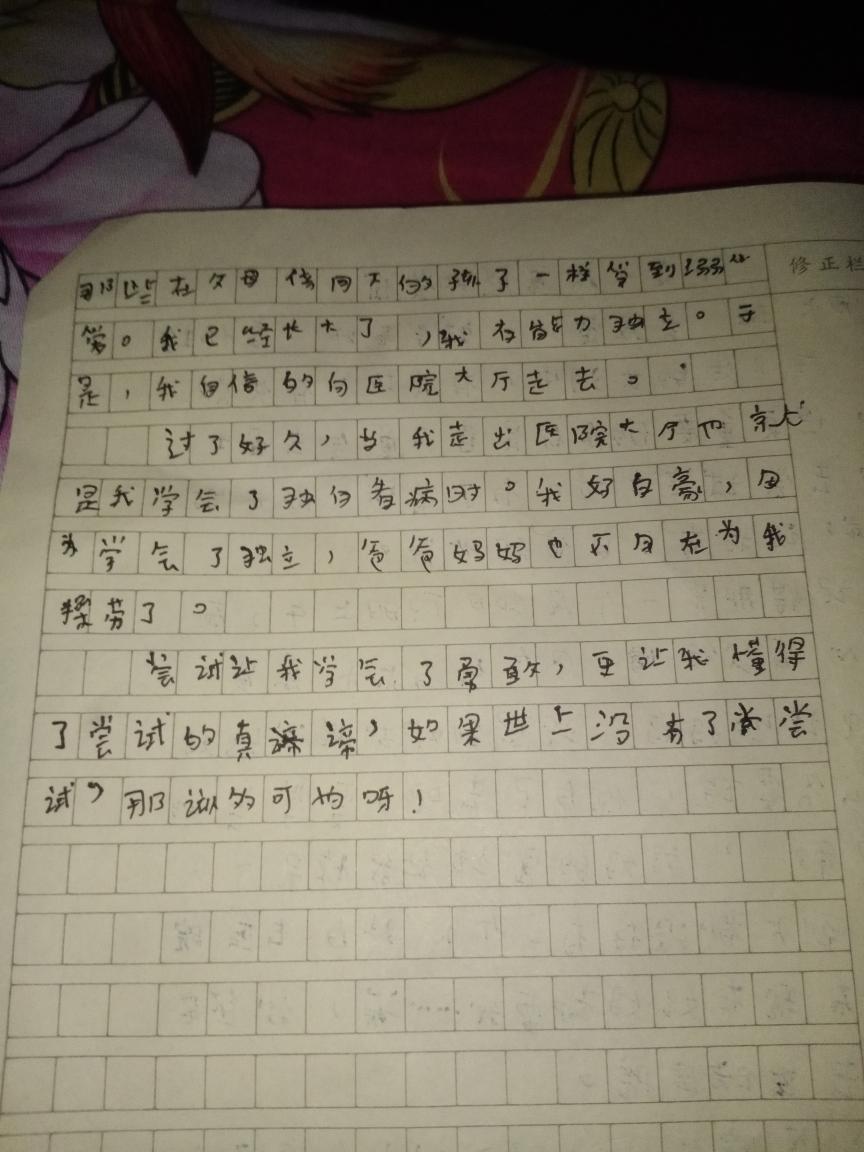 那些在父母 同 的孩子一样 到
。我已经长大了，我有能力独立。于
是，我自信的向医院大厅走去。
过了好久，当我走出医院大厅也就
是我学会了独自看病时。我好自豪，因
为学会了独立，爸爸妈妈也不用在为我
操劳了。
尝试让我学会了勇敢，更让我懂得
了尝试的真谛，如果世上没有了尝
试，那 的可 呀！
修正栏